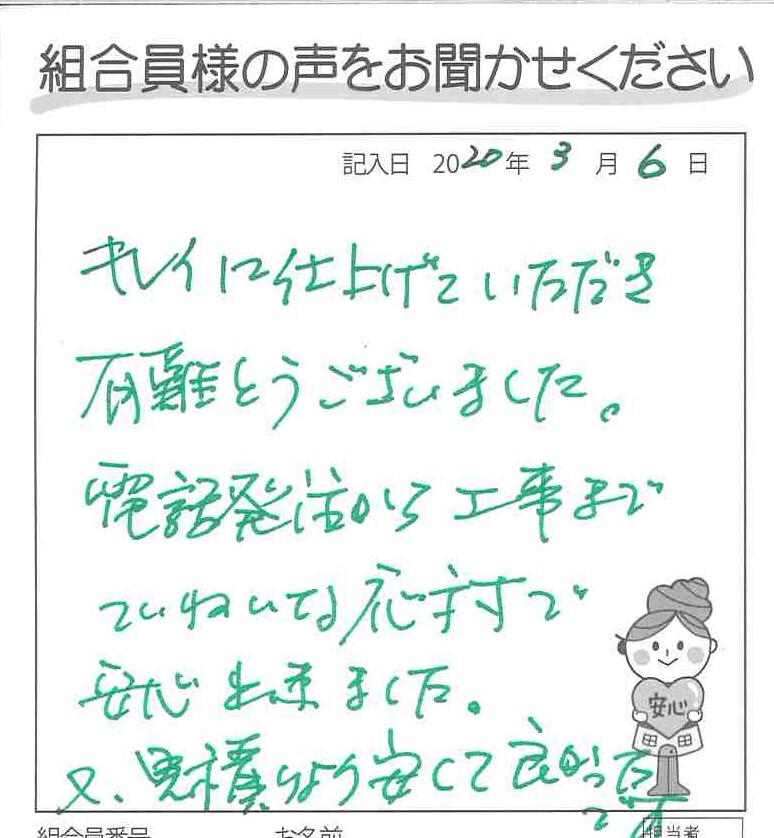 組合員様の声をお聞かせください
記入日 2020年 3月 6日
キレイに仕上げていただき
有難とうございました。
電話発注から工事まで
ていねいな応対で
安心出来ました。
安心
又、見積りより安くて良かった
です
組合員番号 お名前 担当者